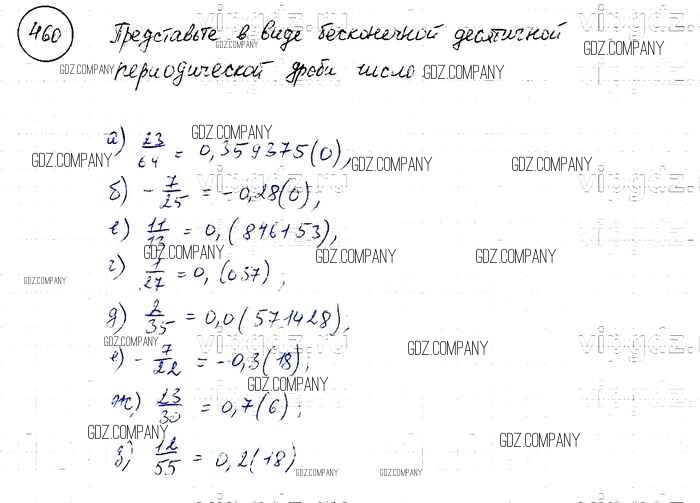 460 Представьте в виде бесконечной десятичной
GDZ.COMPANY GDZ.COMPANY
периодической дроби число
GDZ.COMPANY GDZ.COMPANY
GDZ.COMPANY
а) 23/64 = 0,359375(0),
GDZ.COMPANY GDZ.COMPANY GDZ.COMPANY
б) - 7/25 = -0,28(0),
в) 11/13 = 0,(846153),
GDZ.COMPANY GDZ.COMPANY GDZ.COMPANY
г) 1/27 = 0,(037);
GDZ.COMPANY
д) 2/35 = 0,0(571428),
GDZ.COMPANY GDZ.COMPANY
е) - 7/22 = -0,3(18);
GDZ.COMPANY
ж) 23/30 = 0,7(6);
GDZ.COMPANY GDZ.COMPANY
з) 12/55 = 0,2(18)
GDZ.COMPANY GDZ.COMPANY